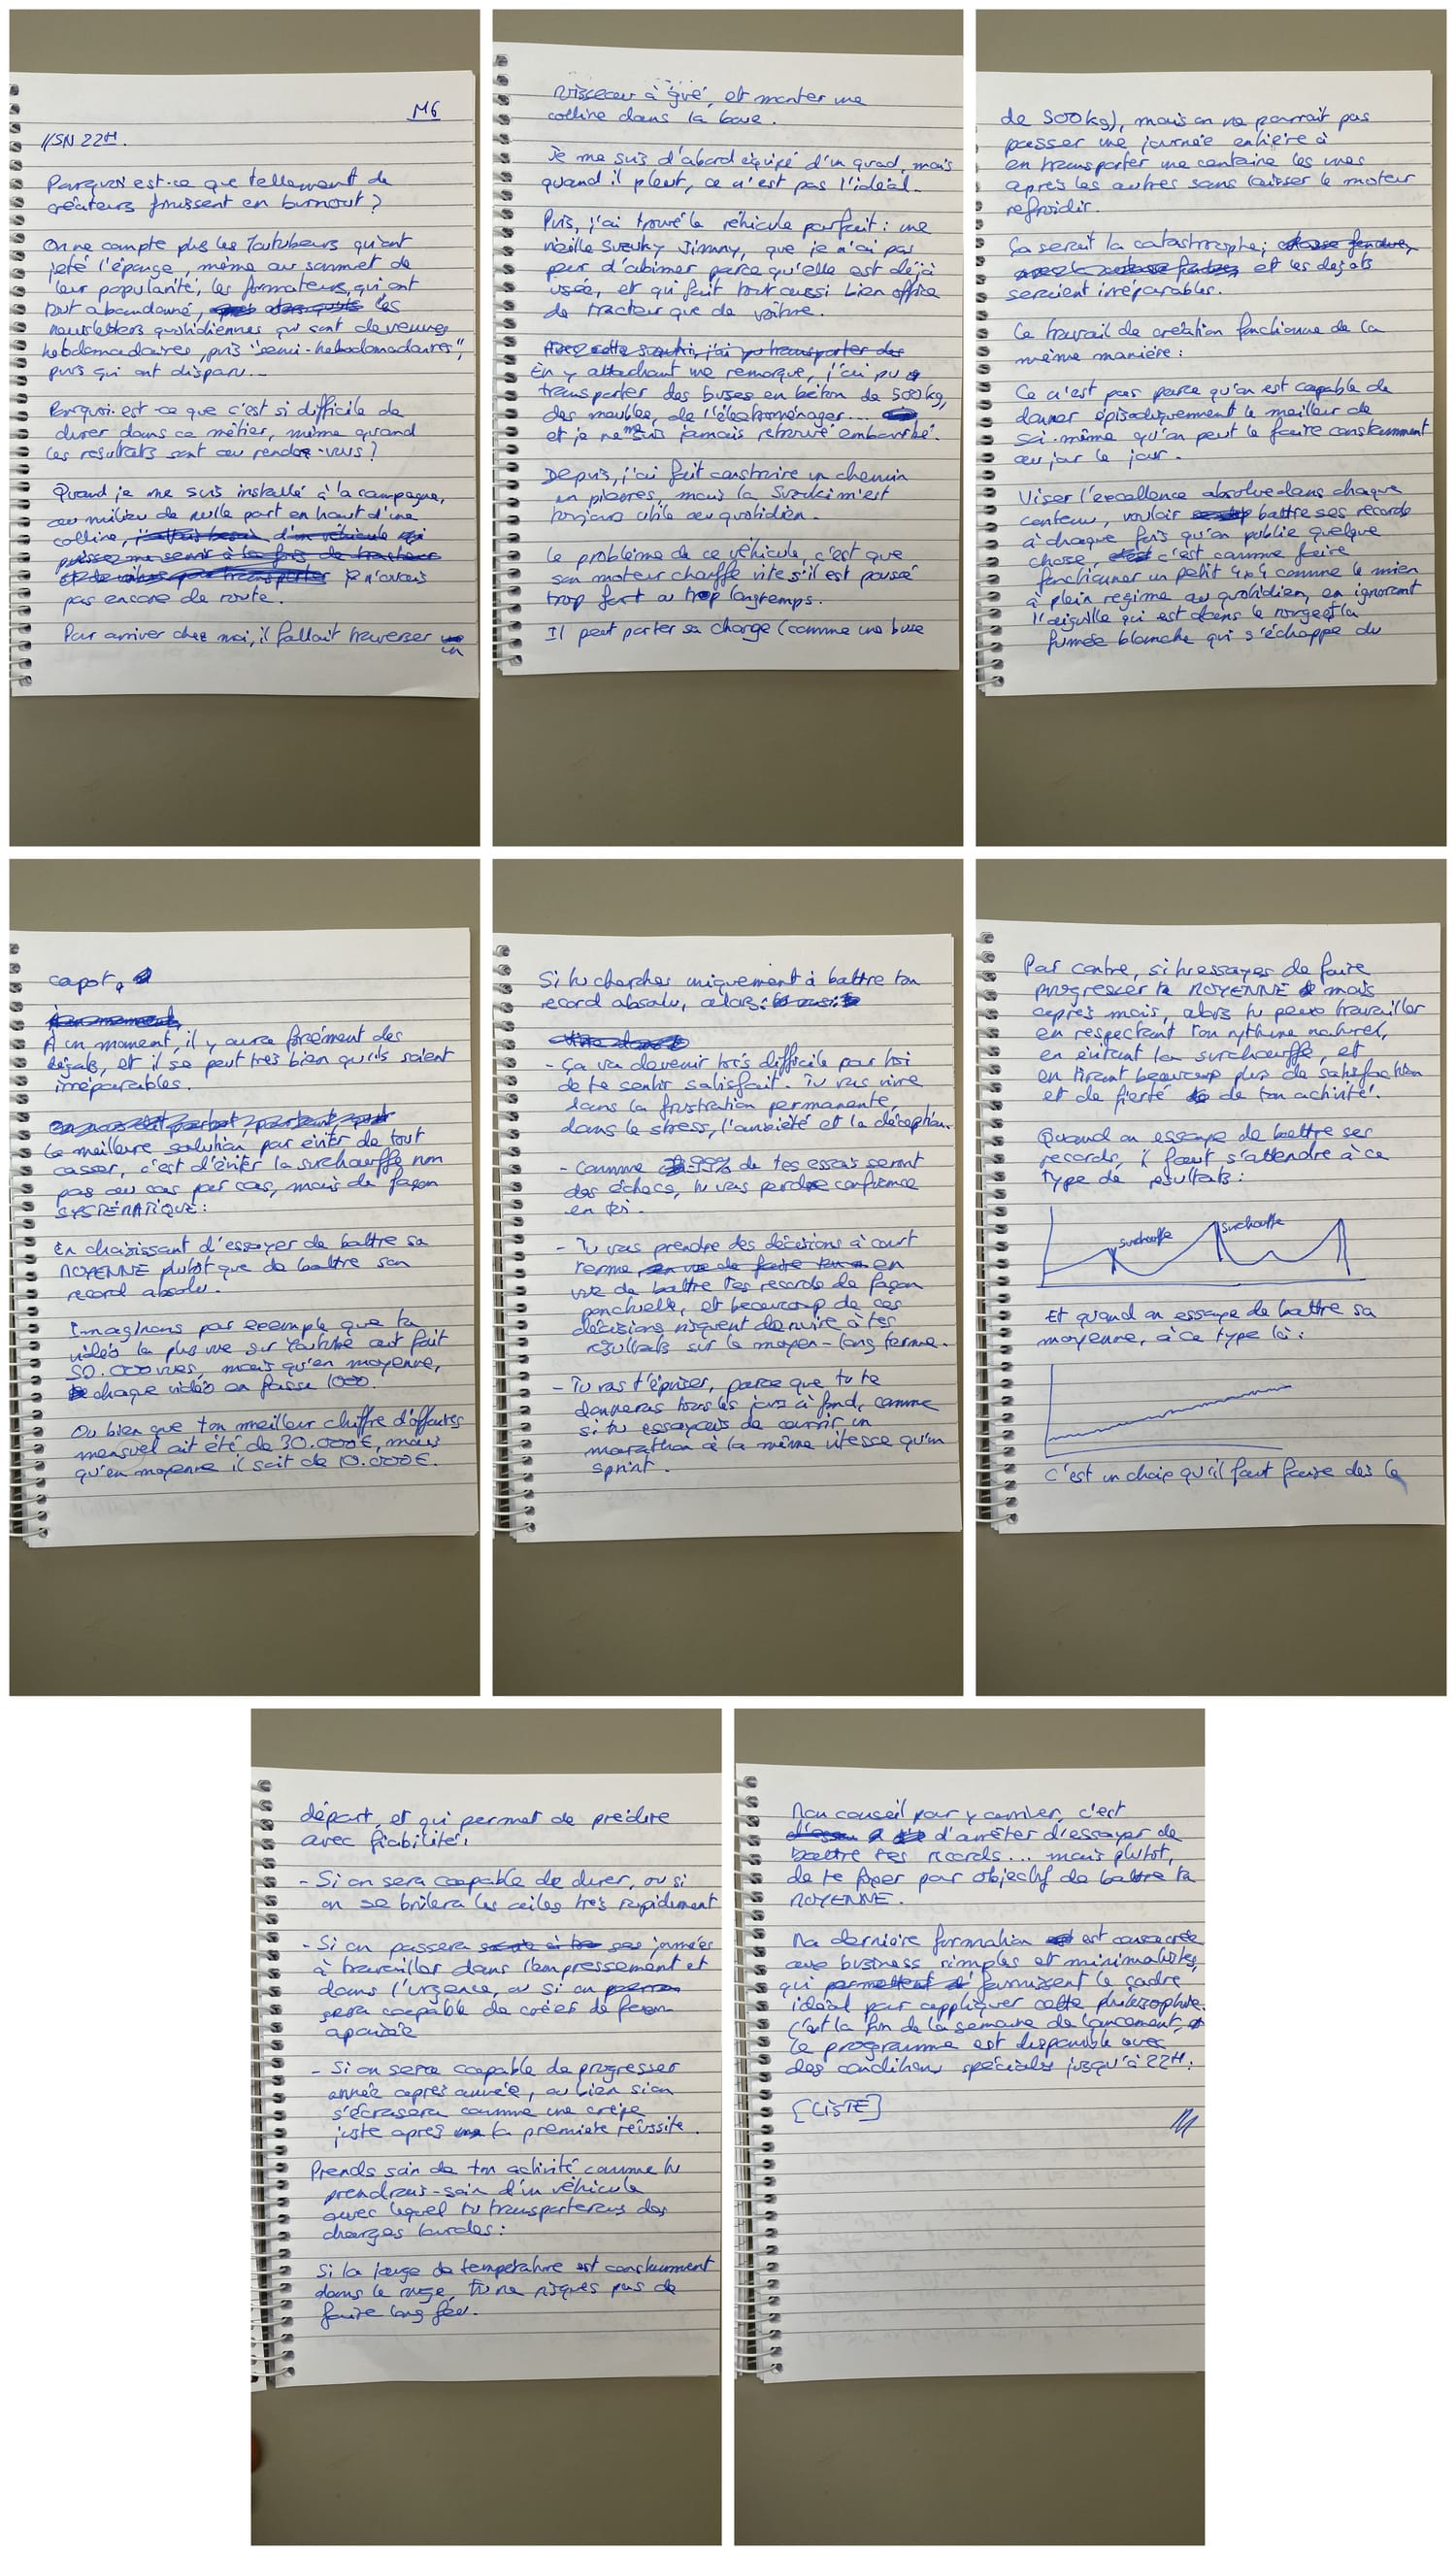 M6
//SN 22H.
Pourquoi est-ce que tellement de
créateurs finissent en burnout?
On ne compte plus les Youtubeurs qui ont
jeté l'éponge, même au sommet de
leur popularité, les formateurs qui ont
tout abandonné, les
newsletters quotidiennes qui sont devenues
hebdomadaires, puis "semi-hebdomadaires",
puis qui ont disparu...
Pourquoi est-ce que c'est si difficile de
durer dans ce métier, même quand
les résultats sont au rendez-vous?
Quand je me suis installé à la campagne,
au milieu de nulle part en haut d'une
colline, j'avais besoin d'un véhicule qui
puisse me servir à la fois de tracteur
et de voiture pour transporter je n'avais
pas encore de route.
Pour arriver chez moi, il fallait traverser un
ruisseau à gué, et monter une
colline dans la boue.
Je me suis d'abord équipé d'un quad, mais
quand il pleut, ce n'est pas l'idéal.
Puis, j'ai trouvé le véhicule parfait : une
vieille Suzuky Jimny, que je n'ai pas
peur d'abîmer parce qu'elle est déjà
usée, et qui fait tout aussi bien office
de tracteur que de voiture.
Avec cette suzuki, j'ai pu transporter des
En y attachant une remorque, j'ai pu
transporter des buses en béton de 500kg,
des meubles, de l'électroménager...
et je ne me suis jamais retrouvé embourbé.
Depuis, j'ai fait construire un chemin
en pierres, mais la Suzuki m'est
toujours utile au quotidien.
Le problème de ce véhicule, c'est que
son moteur chauffe vite s'il est poussé
trop fort ou trop longtemps.
Il peut porter sa charge (comme une buse
de 500kg), mais on ne pourrait pas
passer une journée entière à
en transporter une centaine les unes
après les autres sans laisser le moteur
refroidir.
Ça serait la catastrophe;
et les dégâts
seraient irréparables.
Le travail de création fonctionne de la
même manière :
Ce n'est pas parce qu'on est capable de
donner épisodiquement le meilleur de
soi-même qu'on peut le faire constamment
au jour le jour.
Viser l'excellence absolue dans chaque
contenu, vouloir battre ses records
à chaque fois qu'on publie quelque
chose, c'est comme faire
fonctionner un petit 4x4 comme le mien
à plein régime au quotidien, en ignorant
l'aiguille qui est dans le rouge et la
fumée blanche qui s'échappe du
capot.
À un moment,
À un moment, il y aura forcément des
dégâts, et il se peut très bien qu'ils soient
irréparables.
La meilleure solution pour éviter de tout
casser, c'est d'éviter la surchauffe non
pas au cas par cas, mais de façon
SYSTÉMATIQUE :
En choisissant d'essayer de battre sa
MOYENNE plutôt que de battre son
record absolu.
Imaginons par exemple que ta
vidéo la plus vue sur Youtube ait fait
50.000 vues, mais qu'en moyenne,
chaque vidéo en fasse 1000.
Ou bien que ton meilleur chiffre d'affaires
mensuel ait été de 30.000€, mais
qu'en moyenne il soit de 10.000€.
Si tu cherches uniquement à battre ton
record absolu, alors:
- Ça va devenir très difficile pour toi
de te sentir satisfait. Tu vas vivre
dans la frustration permanente,
dans le stress, l'anxiété et la déception.
- Comme 99% de tes essais seront
des échecs, tu vas perdre confiance
en toi.
- Tu vas prendre des décisions à court
terme en
vue de battre tes records de façon
ponctuelle, et beaucoup de ces
décisions risquent de nuire à tes
résultats sur le moyen-long terme.
- Tu vas t'épuiser, parce que tu te
donneras tous les jours à fond, comme
si tu essayais de courrir un
marathon à la même vitesse qu'un
sprint.
Par contre, si tu essayes de faire
progresser ta MOYENNE mois
après mois, alors tu peux travailler
en respectant ton rythme naturel,
en évitant la surchauffe, et
en tirant beaucoup plus de satisfaction
et de fierté de ton activité.
Quand on essaye de battre ses
records, il faut s'attendre à ce
type de résultats :
surchauffe
surchauffe
Et quand on essaye de battre sa
moyenne, à ce type là :
C'est un choix qu'il faut faire dès le
départ, et qui permet de prédire
avec fiabilité:
- Si on sera capable de durer, ou si
on se brûlera les ailes très rapidement
- Si on passera ses journées
à travailler dans l'empressement et
dans l'urgence, ou si on
sera capable de créer de façon
apaisée
- Si on sera capable de progresser
année après année, ou bien si on
s'écrasera comme une crêpe
juste après la première réussite.
Prends soin de ton activité comme tu
prendrais-soin d'un véhicule
avec lequel tu transporteras des
charges lourdes :
Si la jauge de température est constamment
dans le rouge, tu ne risques pas de
faire long feu.
Mon conseil pour y arriver, c'est
d'arrêter d'essayer de
battre tes records... mais plutôt,
de te fixer pour objectif de battre ta
MOYENNE.
Ma dernière formation est consacrée
aux business simples et minimalistes,
qui permettent d' fournissent le cadre
idéal pour appliquer cette philosophie.
c'est la fin de la semaine de lancement,
le programme est disponible avec
des conditions spéciales jusqu'à 22H :
[LISTE]